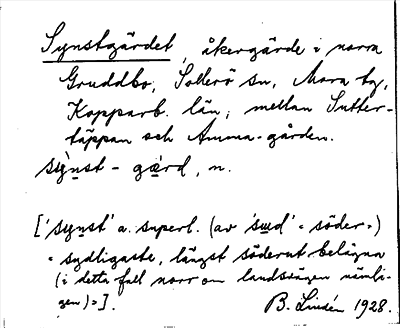 Synstgärdet, åkergärde i norra
Gruddbo, Sollerö sn, Mora tg,
Kopparb. län; mellan Sutter-
täppan och Amma-gården.
sy̖nst - gærd, n.
['synst' a. superl. (av 'swd' = söder=)
= sydligaste, längst söderut belägna
(i detta fall norr om landsvägen nämli-
gen)=].
B. Lindén 1928.